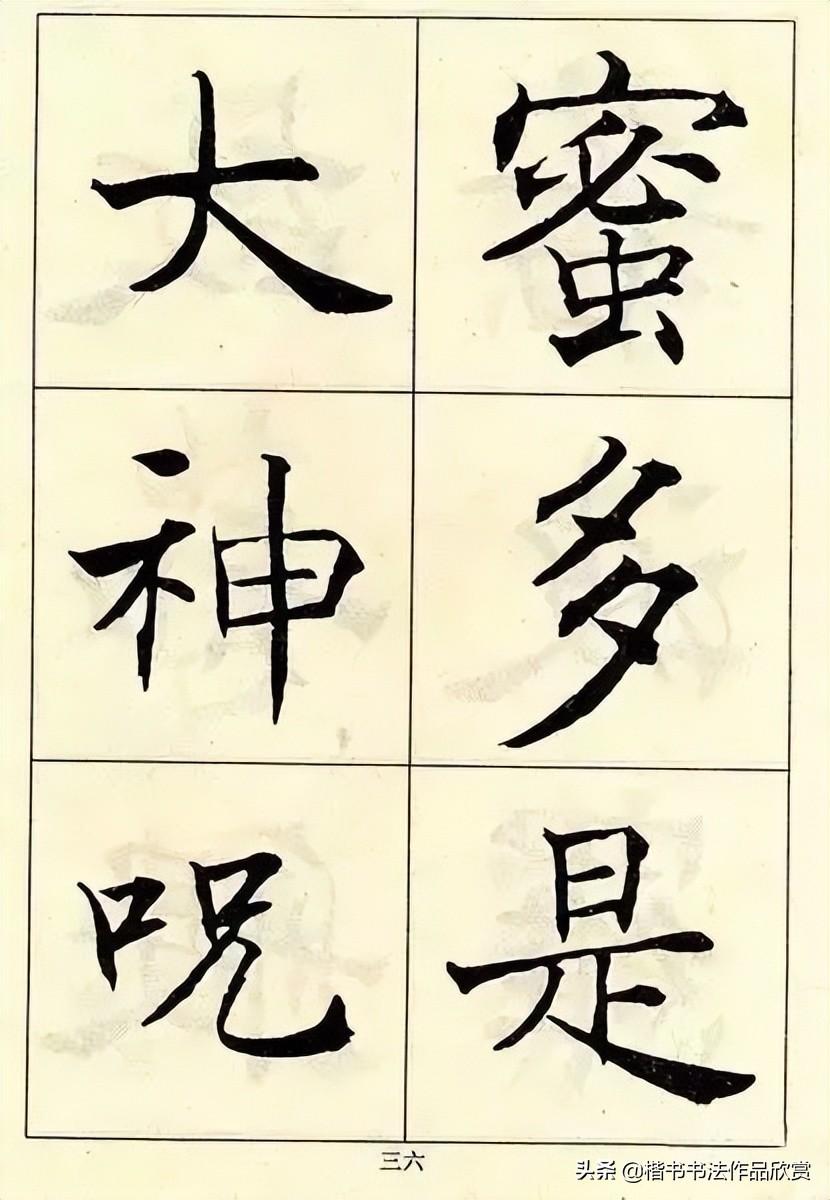 蜜多是
大神咒
三六
头条 @楷书书法作品欣赏